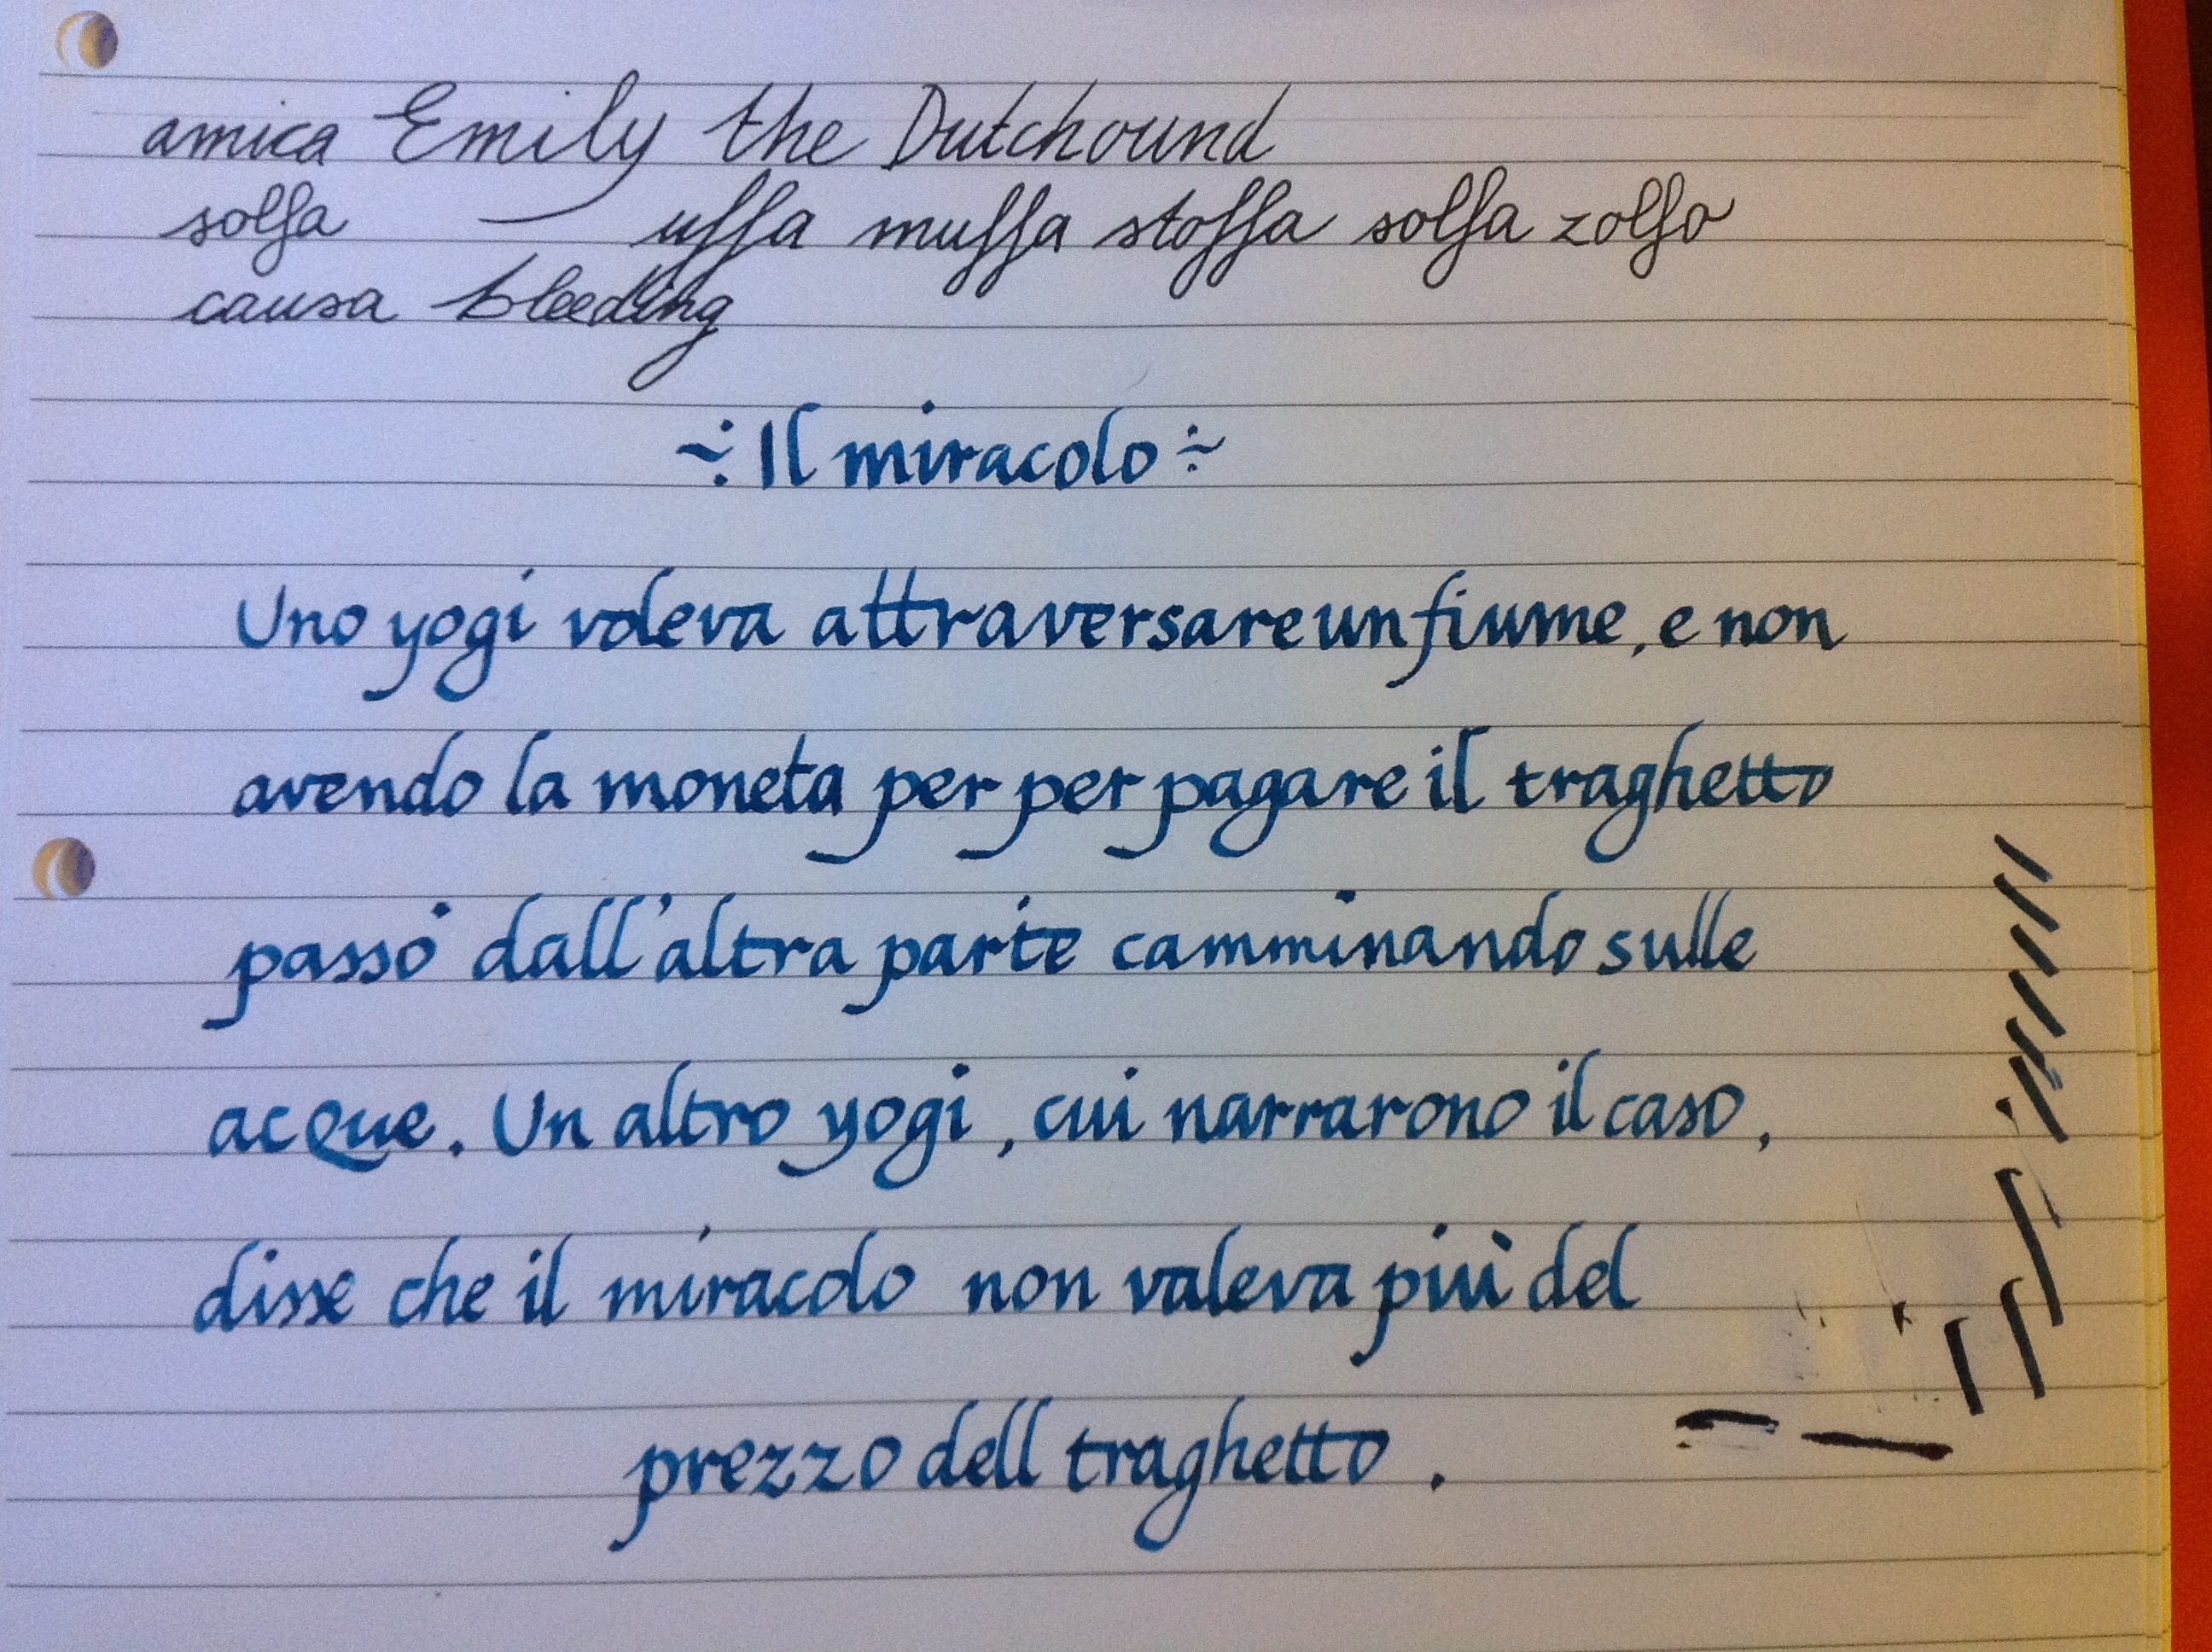 amica Emily the Dutchound
solfa uffa muffa stoffa solfa zolfo
causa bleeding
~: Il miracolo :~
Uno yogi voleva attraversare un fiume, e non
avendo la moneta per per pagare il traghetto
passò dall'altra parte camminando sulle
acQue. Un altro yogi, cui narrarono il caso,
disse che il miracolo non valeva più del
prezzo dell traghetto.